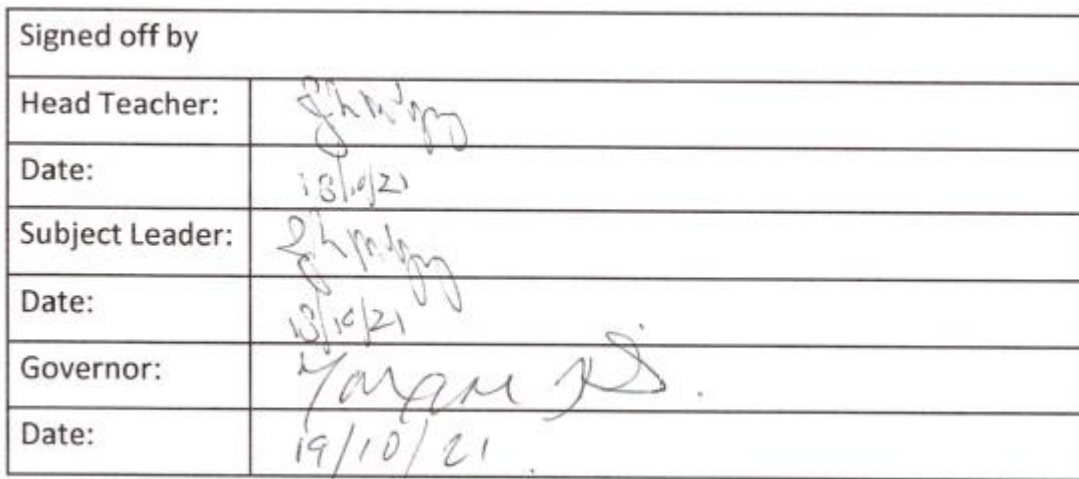 Signed off by
Head Teacher:
Date: 18/10/21
Subject Leader:
Date: 18/10/21
Governor:
Date: 19/10/21